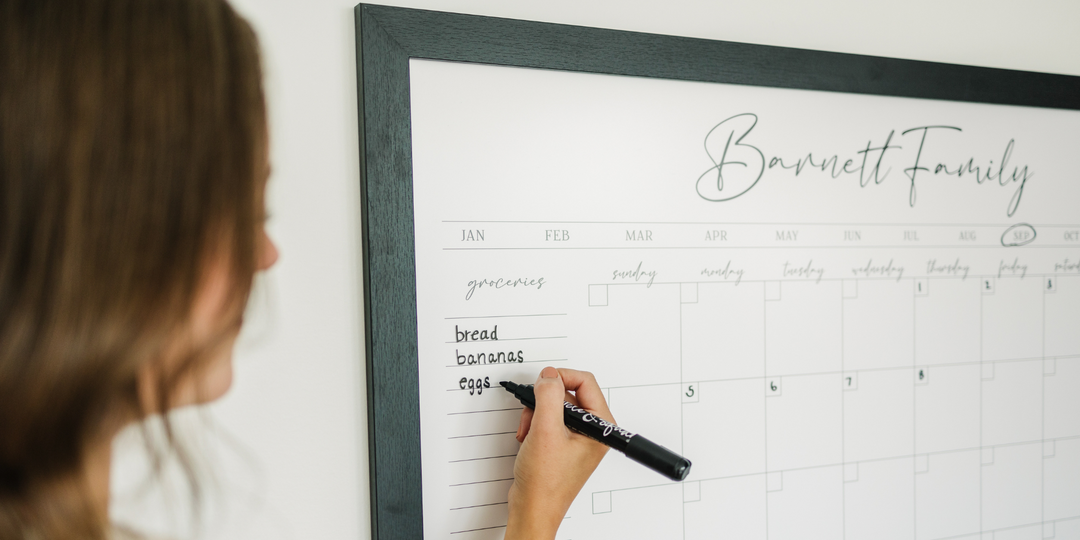 Barnett Family
JAN FEB MAR APR MAY JUN JUL AUG SEP OCT
groceries sunday monday tuesday wednesday thursday friday
1 2 3
bread
bananas
eggs
5 6 7 8